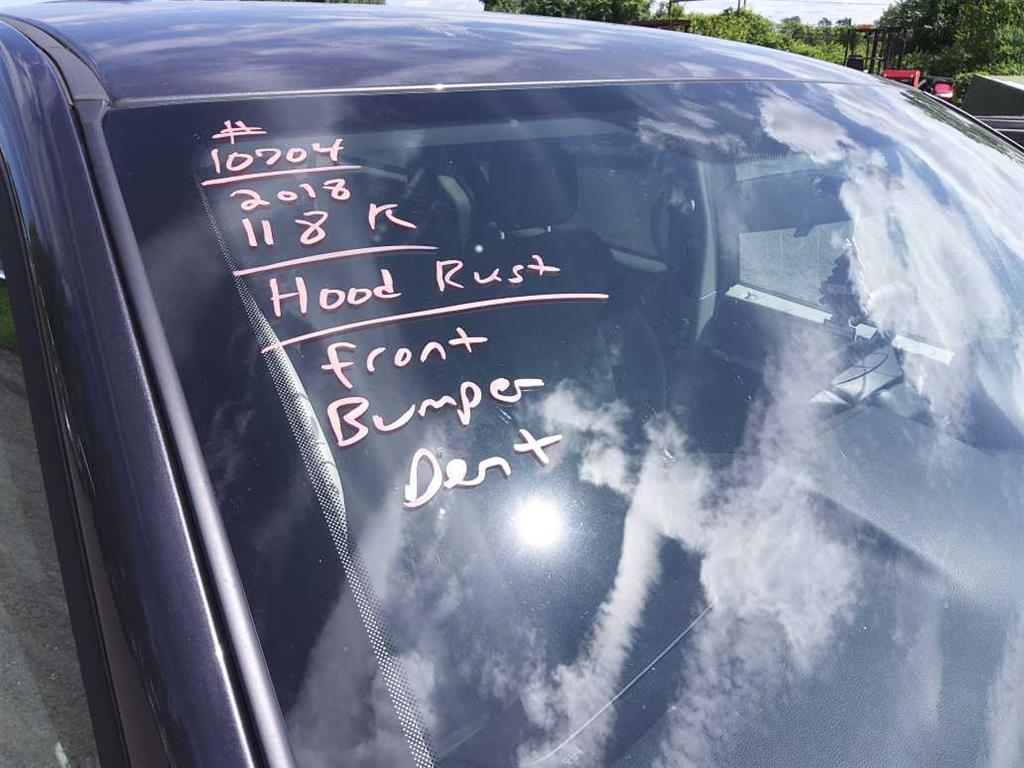 #
10704
2018
118 K
Hood Rust
front
Bumper
Dent